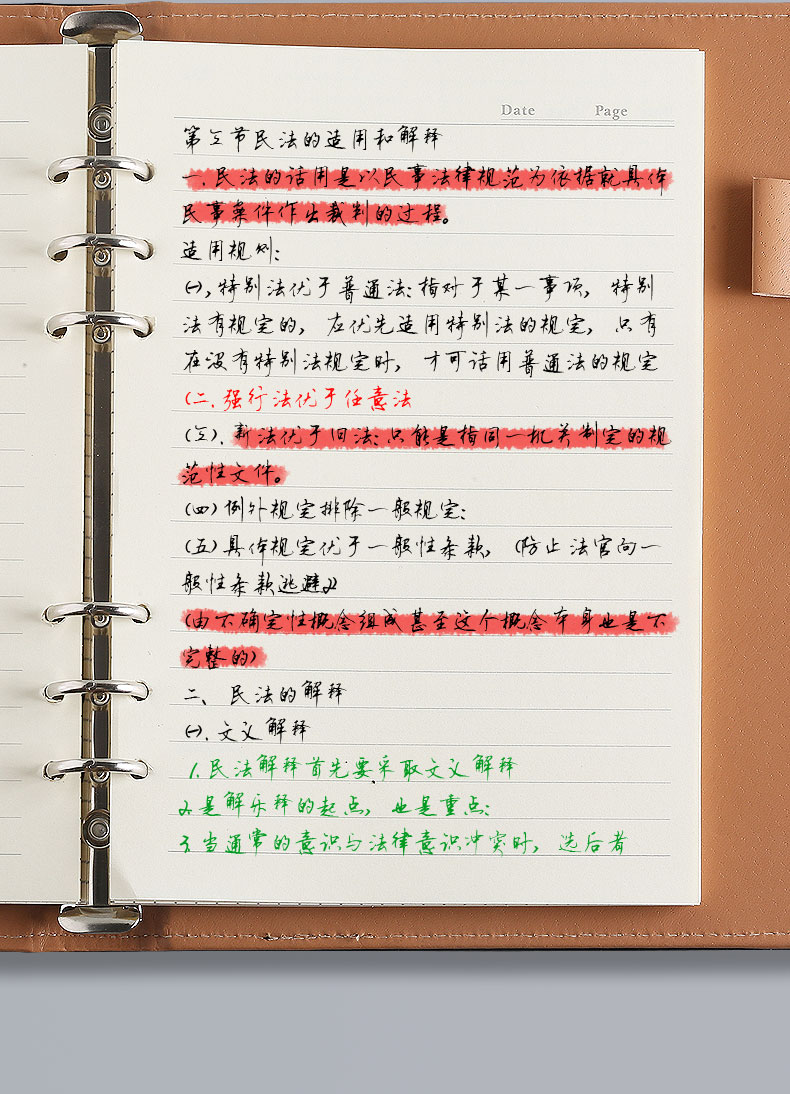 Date Page
第三节民法的适用和解释
一.民法的话用是以民事法律规范为依据就具体
民事案件作出裁判的过程。
适用规则:
(一),特别法优于普通法:指对于某一事项,特别
法有规定的,应优先适用特别法的规定,只有
在没有特别法规定时,才可话用普通法的规定
(二.强行法优于任意法
(三).新法优于旧法:只能是指同一机关制定的规
范性文件。
(四)例外规定排除一般规定;
(五)具体规定优于一般性条款,(防止法官向一
般性条款逃避)
(由不确定性概念组成甚至这个概念本身也是不
完整的)
二、民法的解释
(一).文义解释
1.民法解释首先要采取文义解释
2.是解乐释的起点,也是重点;
3.当通常的意识与法律意识冲突时,选后者